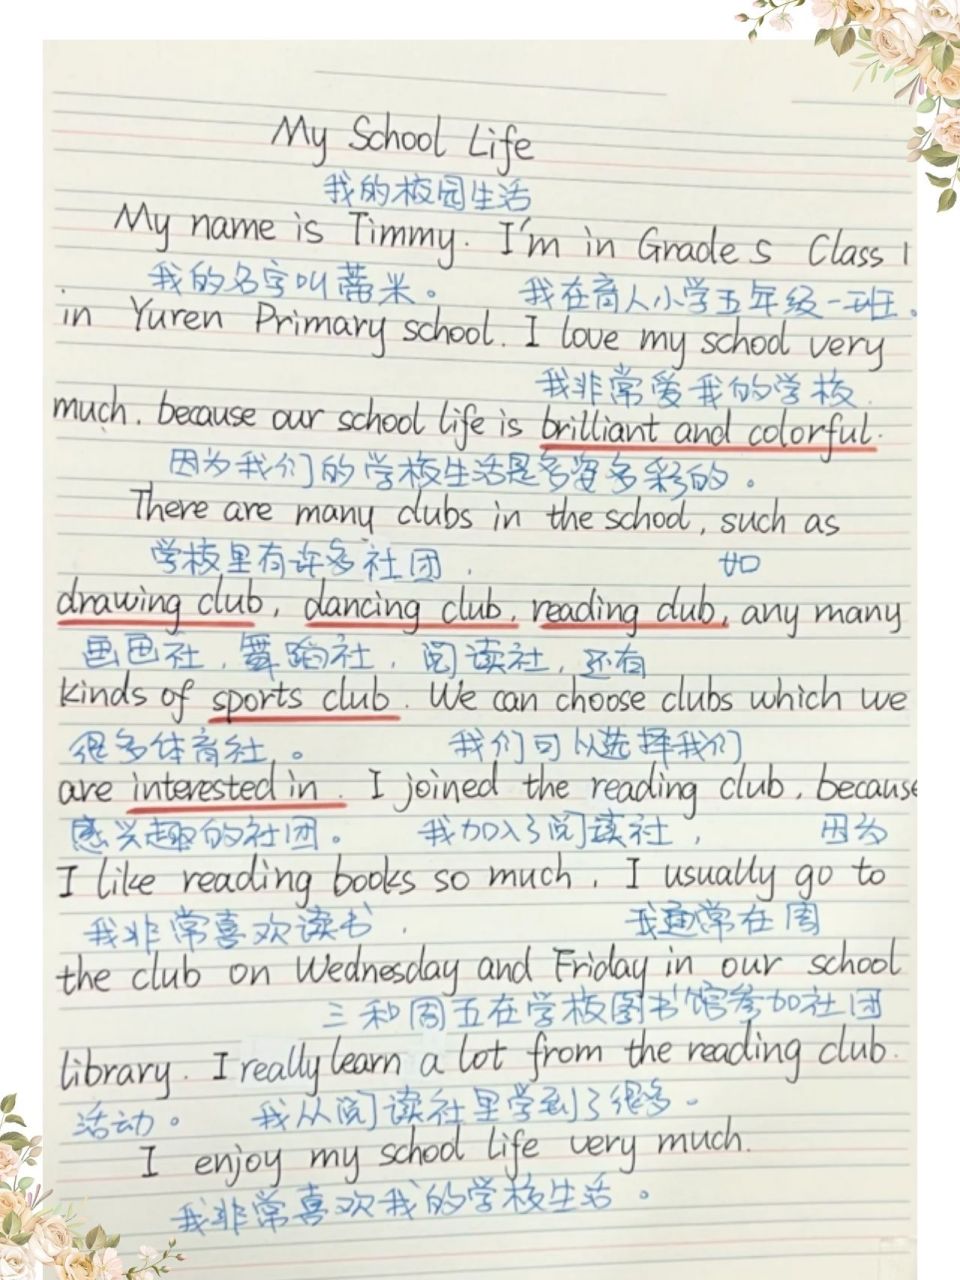 My School Life
我的校园生活
My name is Timmy. I'm in Grade 5 Class 1
我的名字叫蒂米。 我在育人小学五年级一班。
in Yuren Primary school. I love my school very
我非常爱我的学校.
much. because our school life is brilliant and colorful.
因为我们的学校生活是多姿多彩的。
There are many clubs in the school, such as
学校里有许多社团, 如
drawing club, dancing club, reading club, any many
画画社,舞蹈社,阅读社,还有
kinds of sports club. We can choose clubs which we
很多体育社。 我们可以选择我们
are interested in. I joined the reading club, because
感兴趣的社团。 我加入了阅读社, 因为
I like reading books so much, I usually go to
我非常喜欢读书. 我通常在周
the club on Wednesday and Friday in our school
三和周五在学校图书馆参加社团
library. I really learn a lot from the reading club.
活动。 我从阅读社里学到了很多。
I enjoy my school life very much.
我非常喜欢我的学校生活。